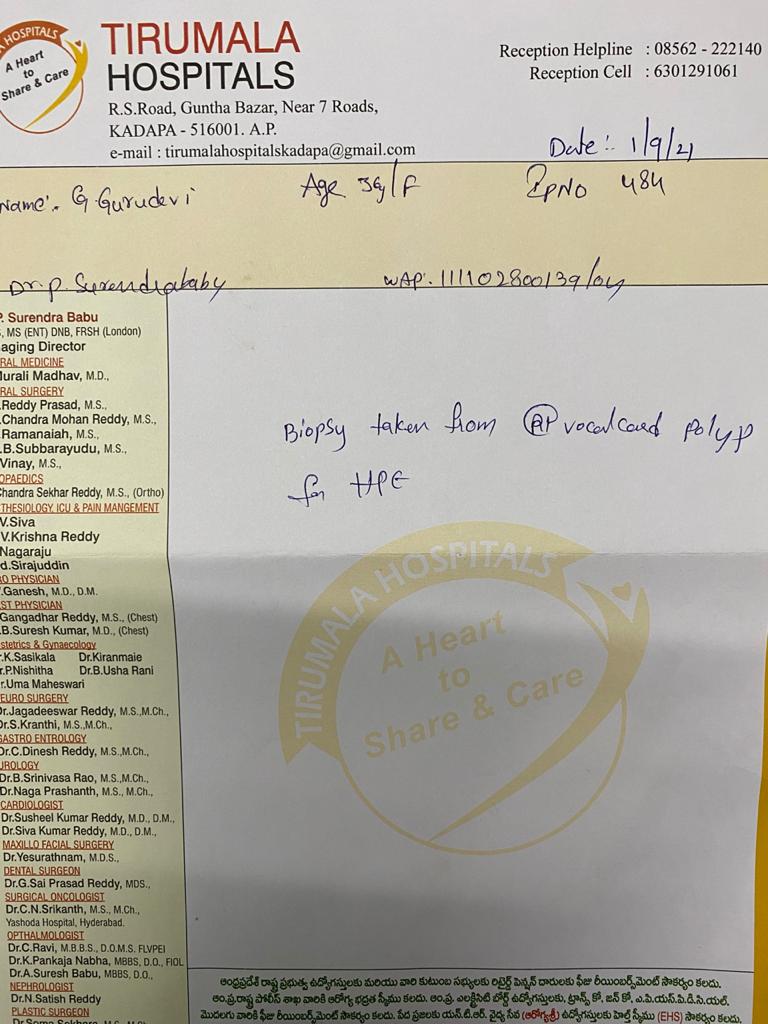 HOSPITALS
A Heart
to
Share & Care
TIRUMALA
HOSPITALS
R.S.Road, Guntha Bazar, Near 7 Roads,
KADAPA - 516001. A.P.
e-mail : tirumalahospitalskadapa@gmail.com
Reception Helpline : 08562 - 222140
Reception Cell : 6301291061
Date:- 1/9/21
Name:. G. Gurudevi Age /F IPNO 484
Dr. P. Surendrababy WAP. 111102800139/04
P. Surendra Babu
, MS (ENT) DNB, FRSH (London)
aging Director
RAL MEDICINE
urali Madhav, M.D.,
RAL SURGERY
Reddy Prasad, M.S.,
Chandra Mohan Reddy, M.S.,
Ramanaiah, M.S.,
.B.Subbarayudu, M.S.,
Vinay, M.S.,
OPAEDICS
Chandra Sekhar Reddy, M.S., (Ortho)
THESIOLOGY, ICU & PAIN MANGEMENT
V.Siva
V.Krishna Reddy
Nagaraju
d.Sirajuddin
RO PHYSICIAN
.Ganesh, M.D., D.M.
ST PHYSICIAN
Gangadhar Reddy, M.S., (Chest)
.B.Suresh Kumar, M.D., (Chest)
stetrics & Gynaecology
r.K.Sasikala Dr.Kiranmaie
r.P.Nishitha Dr.B.Usha Rani
r.Uma Maheswari
EURO SURGERY
Dr.Jagadeeswar Reddy, M.S.,M.Ch.,
Dr.S.Kranthi, M.S.,M.Ch.,
GASTRO ENTROLOGY
Dr.C.Dinesh Reddy, M.S.,M.Ch.,
UROLOGY
Dr.B.Srinivasa Rao, M.S.,M.Ch.,
Dr.Naga Prashanth, M.S., M.Ch.,
CARDIOLOGIST
Dr.Susheel Kumar Reddy, M.D., D.M.,
Dr.Siva Kumar Reddy, M.D., D.M.,
MAXILLO FACIAL SURGERY
Dr.Yesurathnam, M.D.S.,
DENTAL SURGEON
Dr.G.Sai Prasad Reddy, MDS.,
SURGICAL ONCOLOGIST
Dr.C.N.Srikanth, M.S., M.Ch.,
Yashoda Hospital, Hyderabad.
OPTHALMOLOGIST
Dr.C.Ravi, M.B.B.S., D.O.M.S. FLVPEI
Dr.K.Pankaja Nabha, MBBS, D.O., FIOL
Dr.A.Suresh Babu, MBBS, D.O.,
NEPHROLOGIST
Dr.N.Satish Reddy
PLASTIC SURGEON
Biopsy taken from Rt vocalcard polyp
for HPE
TIRUMALA HOSPITALS
A Heart
to
Share & Care
ఆంధ్రప్రదేశ్ రాష్ట్ర ప్రభుత్వ ఉద్యోగస్తులకు మరియు వారి కుటుంబ సభ్యులకు రిటైర్డ్ పెన్షన్ దారులకు ఫీజు రీయింబర్స్‌మెంట్ సౌకర్యం కలదు.
ఆం.ప్ర.రాష్ట్ర పోలీస్ శాఖ వారికి ఆరోగ్య భద్రత స్కీము కలదు. ఆం.ప్ర. ఎలక్ట్రిసిటి బోర్డ్ ఉద్యోగస్తులకు, ట్రాన్స్ కో, జన్ కో, ఎ.పి.యస్.పి.డి.సి.యల్.
మొదలగు వారికి ఫీజు రీయింబర్స్‌మెంట్ సౌకర్యం కలదు. పేద ప్రజలకు యన్.టి.ఆర్. వైద్య సేవ (ఆరోగ్యశ్రీ) ఉద్యోగస్తులకు హెల్త్ స్కీము (EHS) సౌకర్యం కలదు.